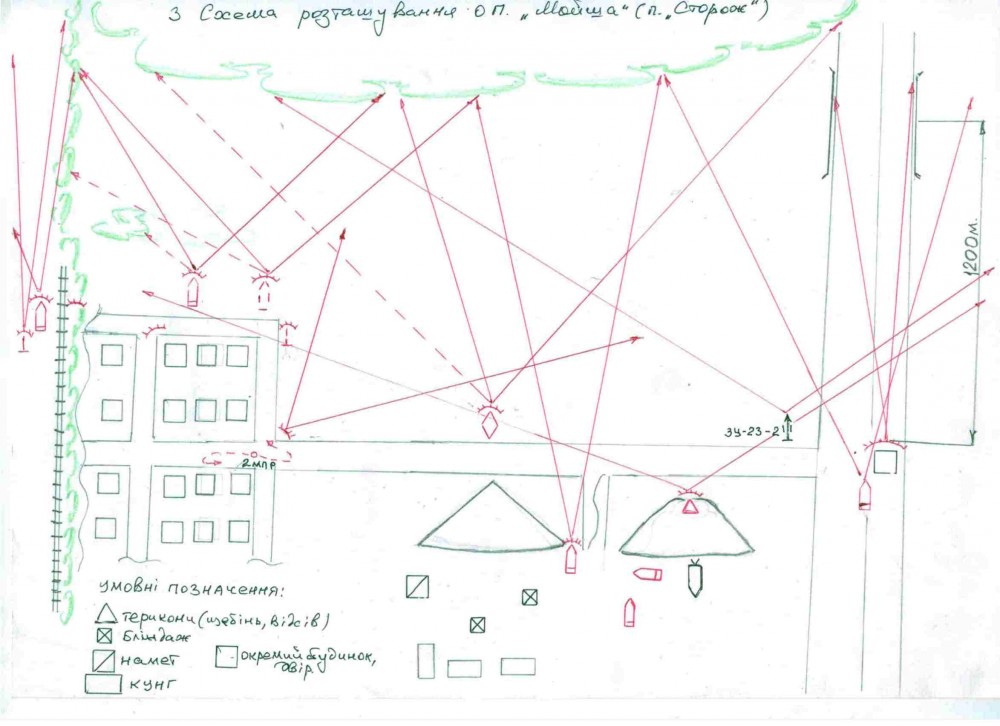 3 Схема розташування ОП. „Мойша" (п. „Сторож")
1200м.
ЗУ-23-2
2 МПР
умовні позначення:
терикони (щебінь, відсів)
бліндаж
намет
окремий будинок,
двір.
кунг